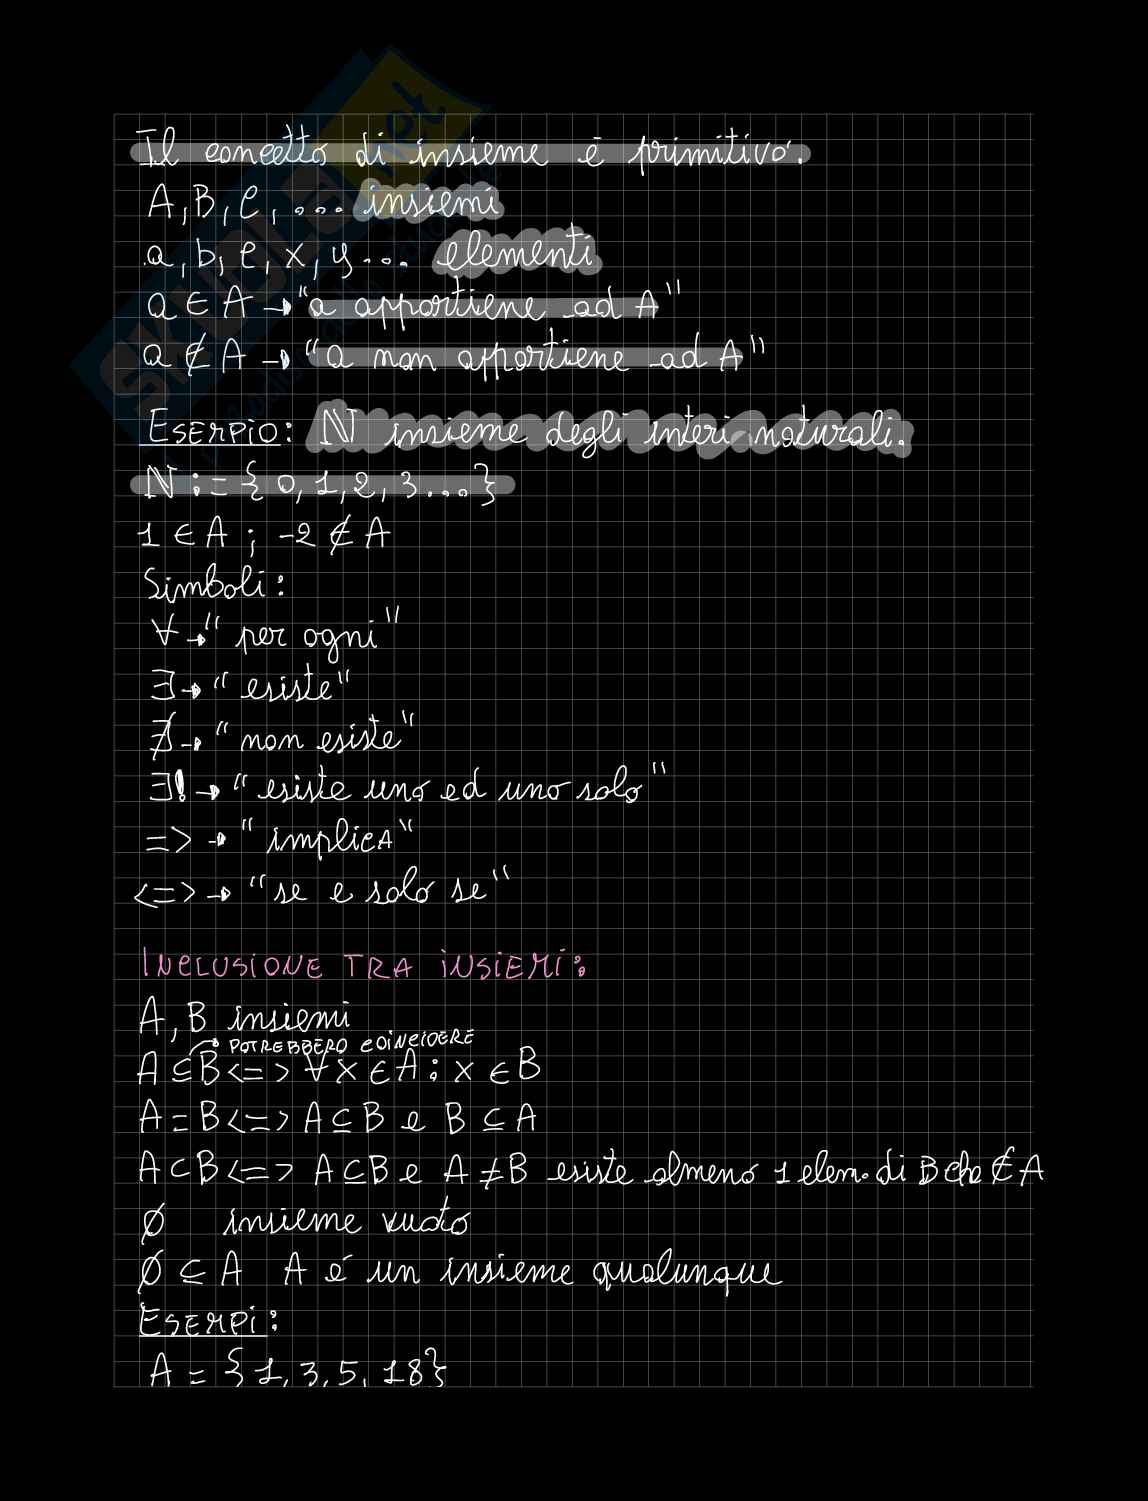 Il concetto di insieme è primitivo.
A, B, C, ... insiemi
a, b, c, x, y... elementi
a ∈ A → "a appartiene ad A"
a ∉ A → "a non appartiene ad A"
ESEMPIO: ℕ insieme degli interi naturali.
ℕ := { 0, 1, 2, 3...}
1 ∈ A ; -2 ∉ A
Simboli:
∀ → "per ogni"
∃ → "esiste"
∄ → "non esiste"
∃! → "esiste uno ed uno solo"
=> → "implica"
<=> → "se e solo se"
INCLUSIONE TRA INSIEMI:
A, B insiemi
→ POTREBBERO COINCIDERE
A ⊆ B <=> ∀ x ∈ A : x ∈ B
A = B <=> A ⊆ B e B ⊆ A
A ⊂ B <=> A ⊆ B e A ≠ B esiste almeno 1 elem. di B che ∉ A
∅ insieme vuoto
∅ ⊆ A A é un insieme qualunque
ESEMPI:
A = {1, 3, 5, 18}